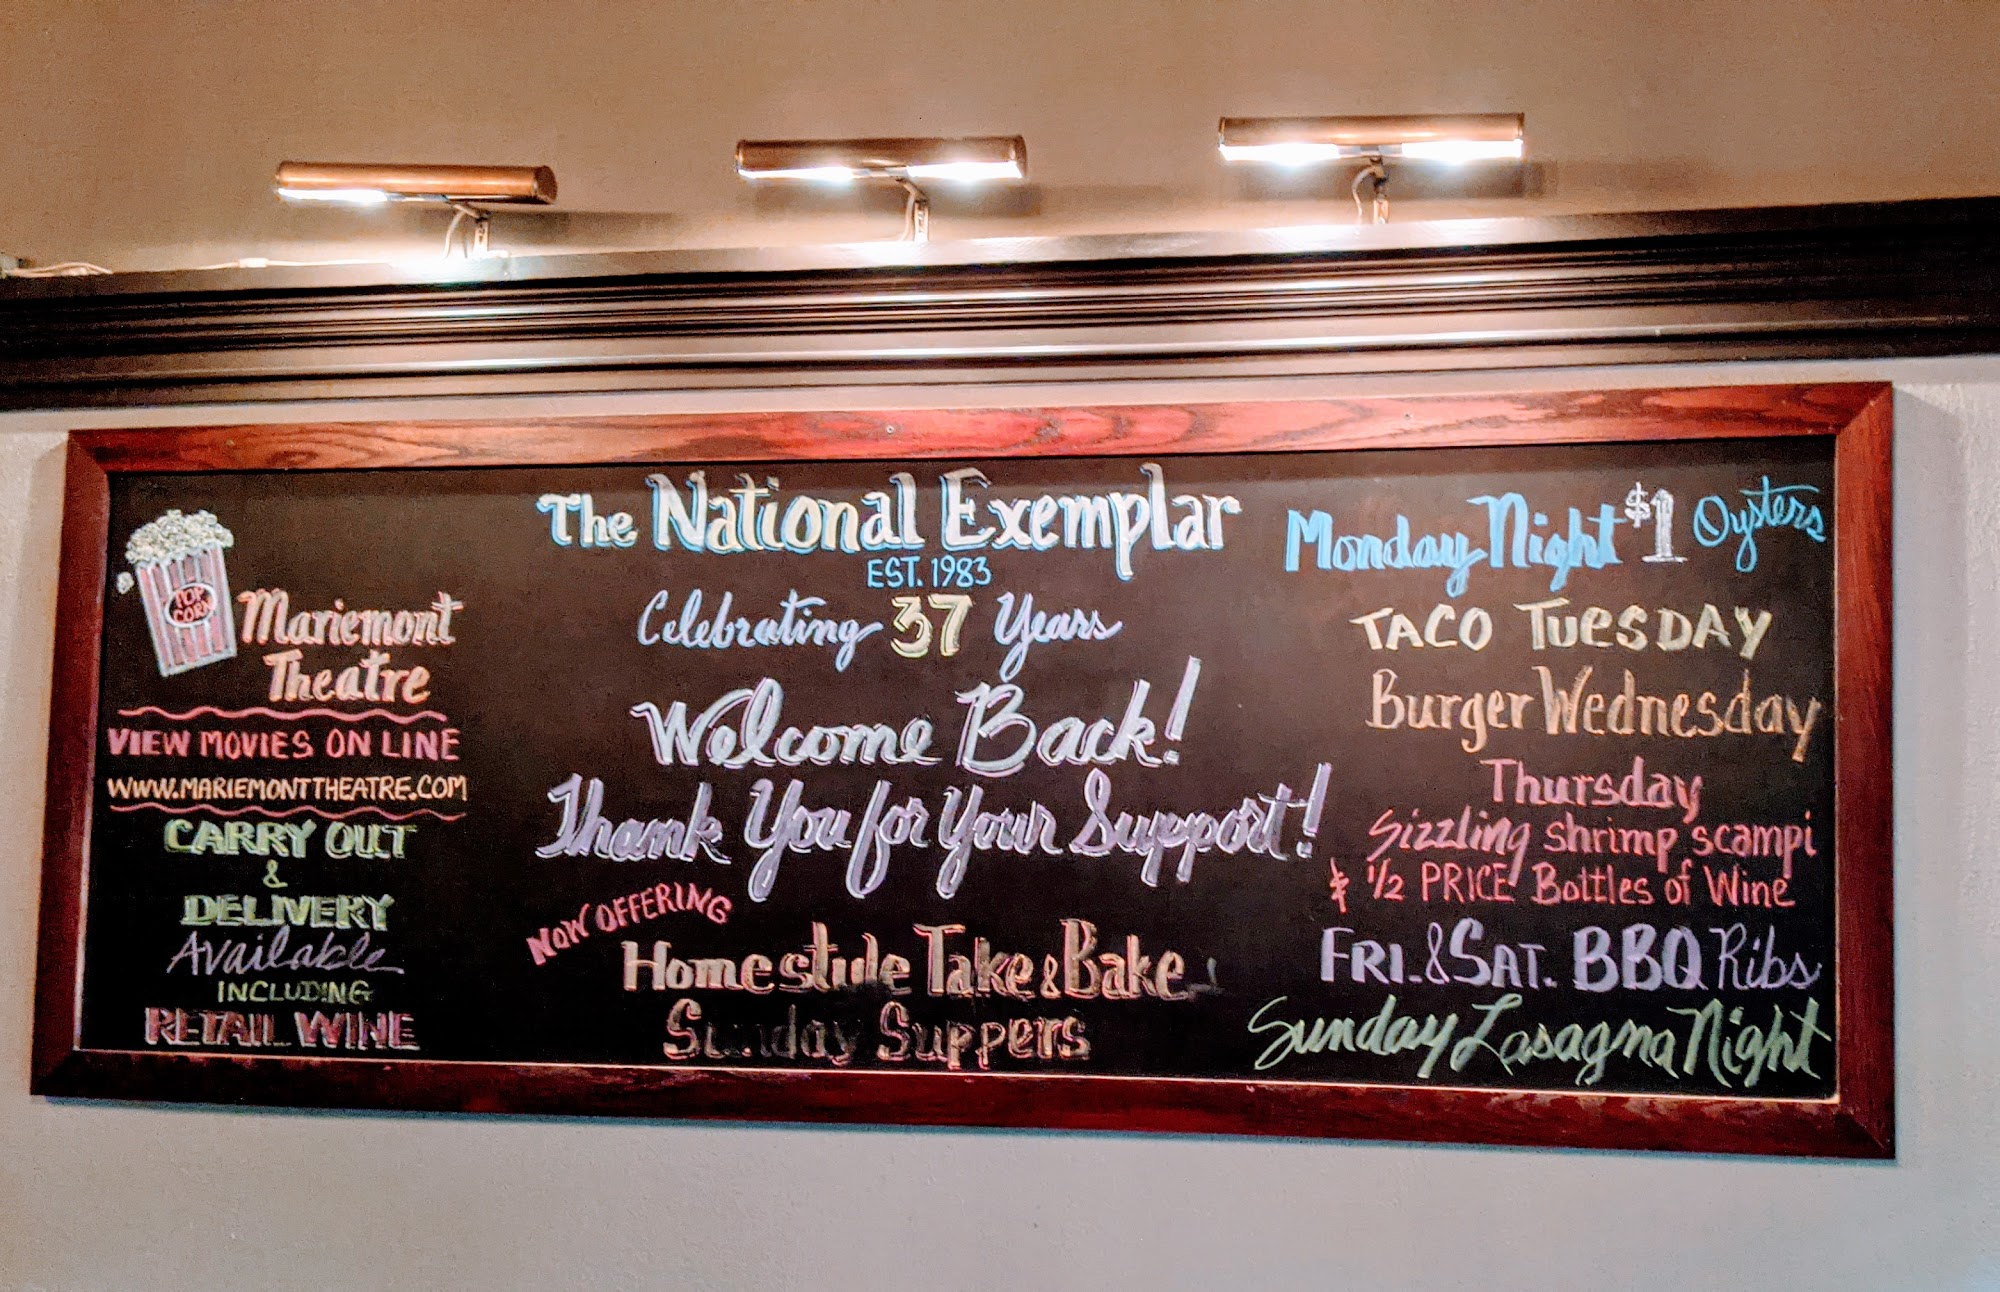 POP
CORN
Mariemont
Theatre
VIEW MOVIES ON LINE
WWW.MARIEMONTTHEATRE.COM
CARRY OUT
&
DELIVERY
Available
INCLUDING
RETAIL WINE
The National Exemplar
EST. 1983
Celebrating 37 Years
Welcome Back!
Thank You for Your Support!
NOW OFFERING
Homestyle Take & Bake
Sunday Suppers
Monday Night $1 Oysters
TACO TUESDAY
Burger Wednesday
Thursday
Sizzling shrimp scampi
& 1/2 PRICE Bottles of Wine
FRI. & SAT. BBQ Ribs
Sunday Lasagna Night